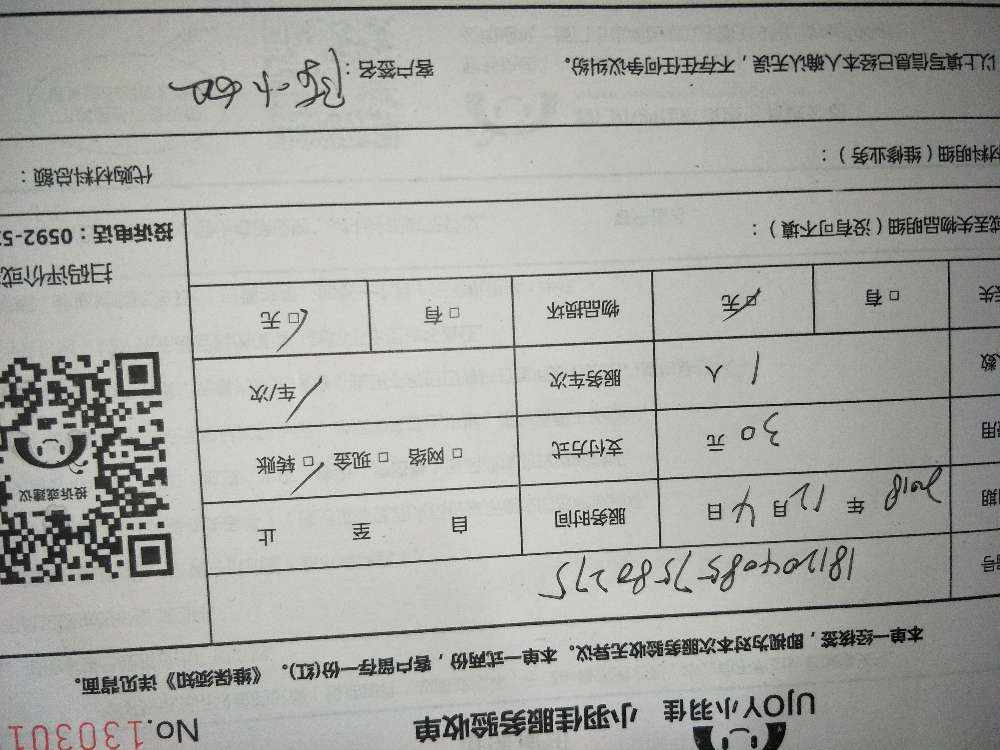 UJOY小羽佳 小羽佳服务验收单 No.130301
本单一经核签，即视为对本次服务验收无异议。本单一式两份，客户留存一份(红)。《维保须知》详见背面。
号
期 2018 年 12 月 4 日 服务时间 自 至 止
用 30 元 支付方式 □ 网络 □ 现金 □ 转账
数 1 人 服务车次 / 车/次
失 □ 有 □ 无 物品损坏 □ 有 □ 无
投诉或建议
扫码评价或
投诉电话：0592-5
或丢失物品明细（没有可不填）：
材料明细（维修业务）： 代购材料总额：
以上填写信息已经本人确认无误，不存在任何争议纠纷。 客户签名：